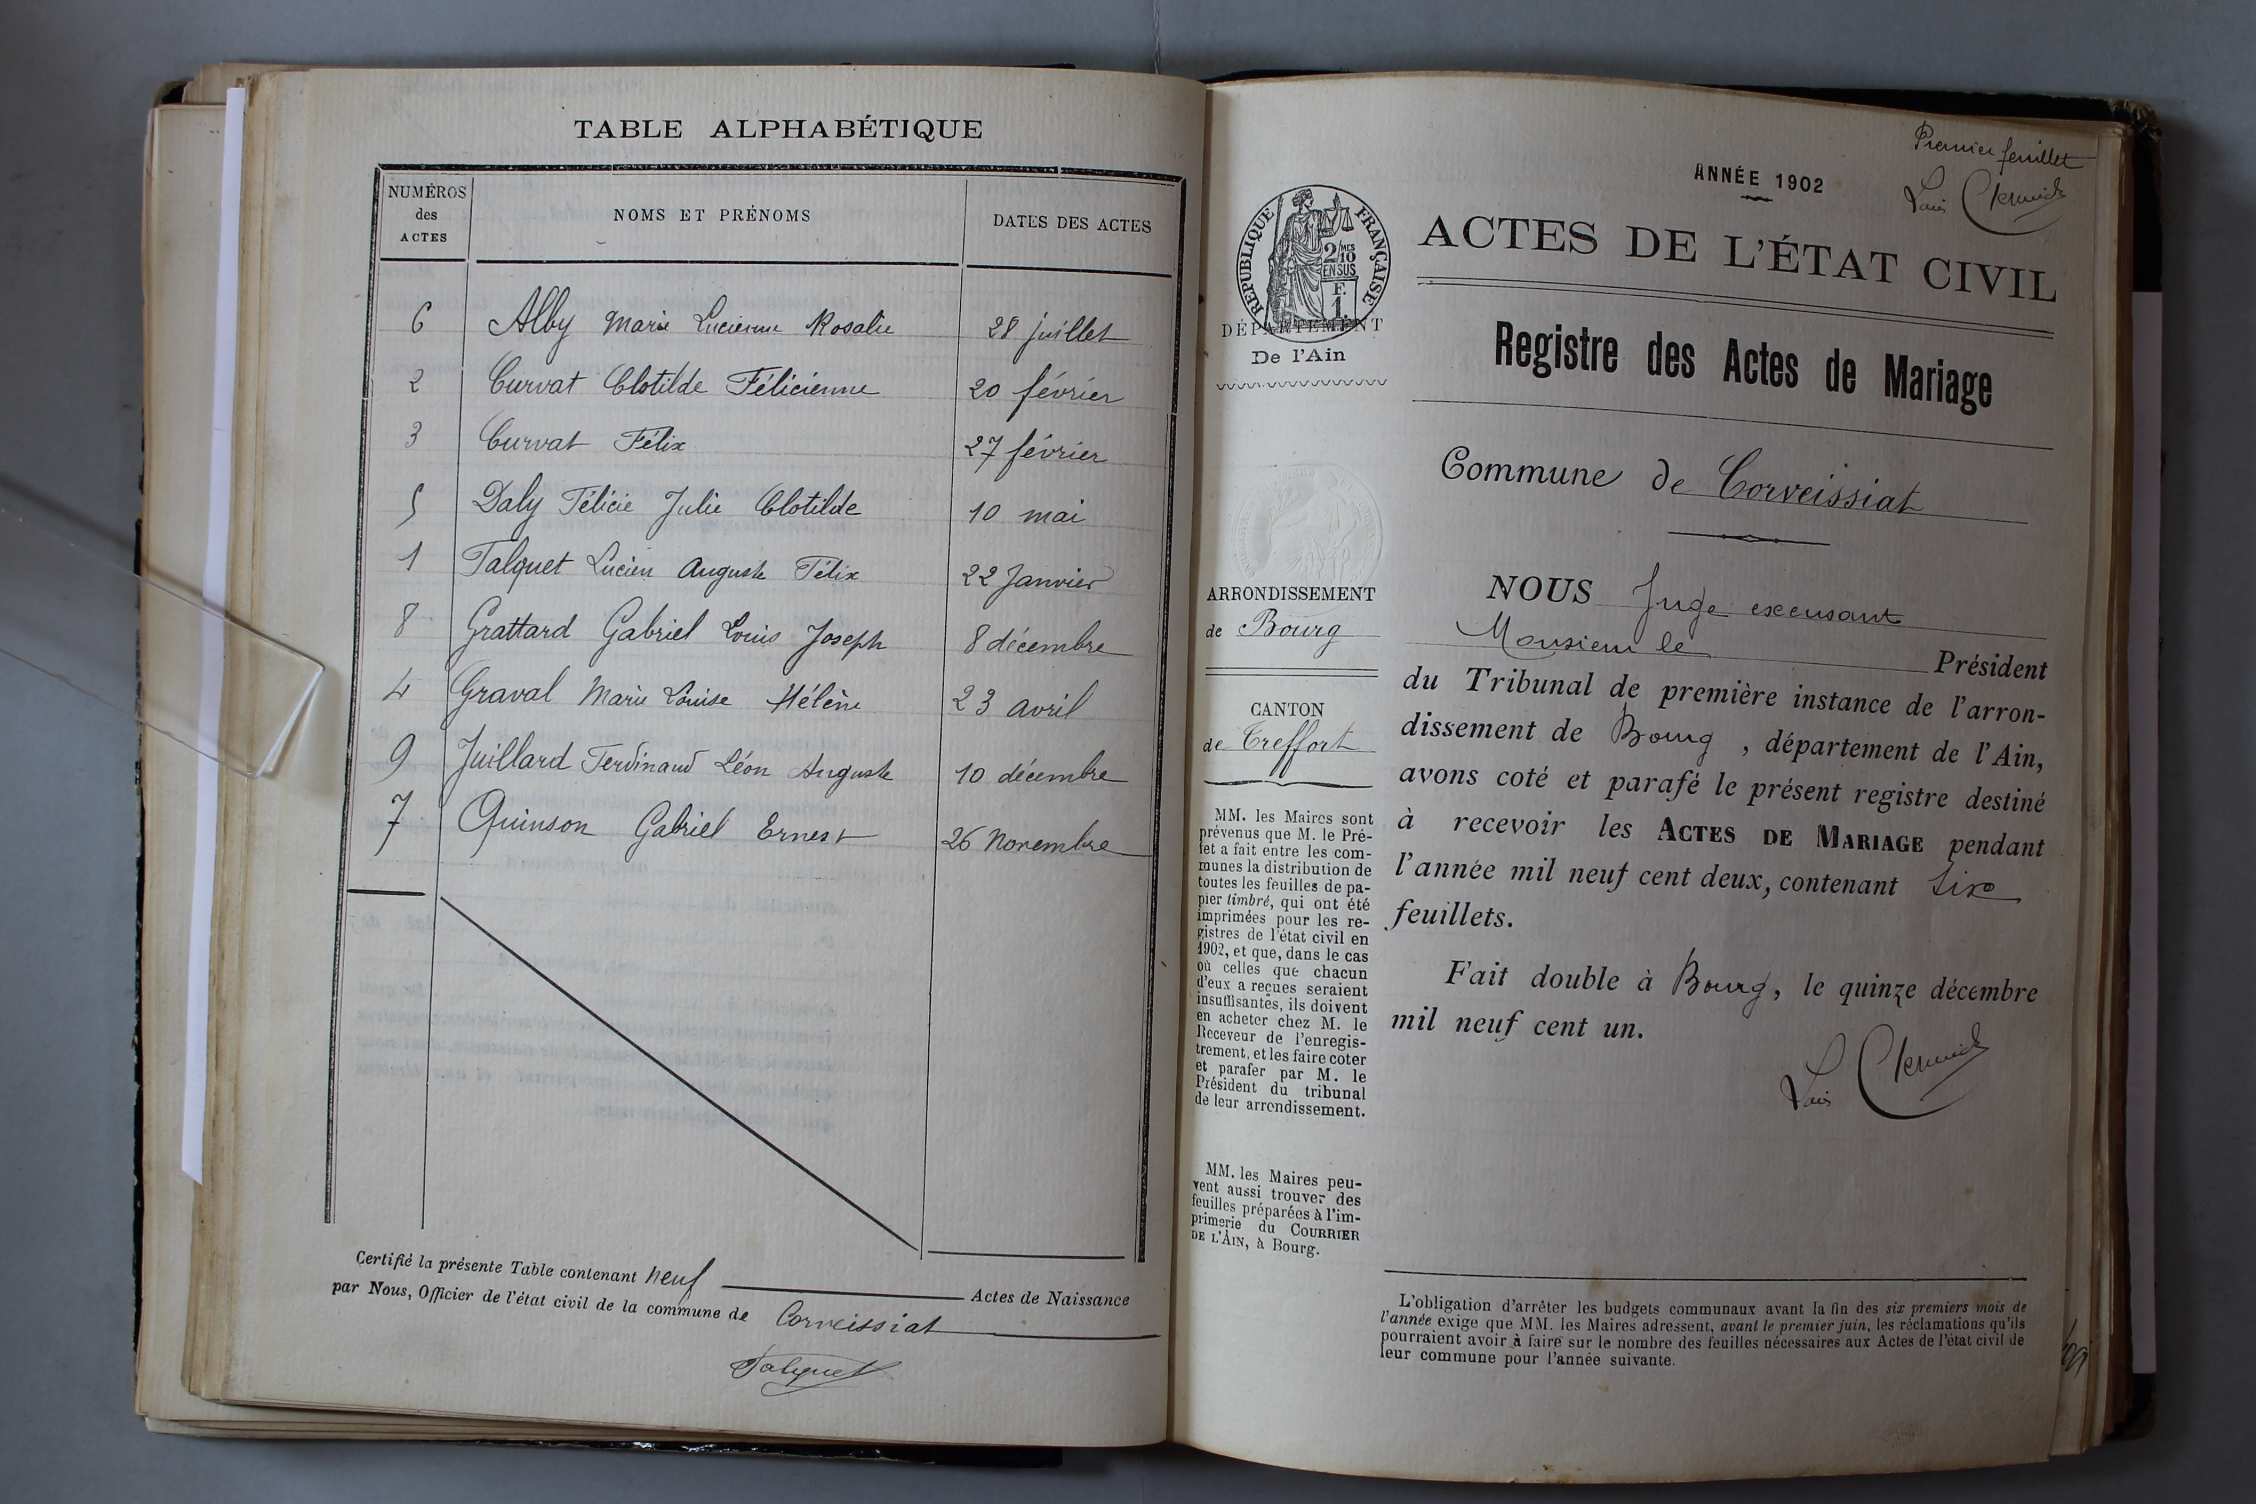 TABLE ALPHABÉTIQUE
NUMÉROS des ACTES
NOMS ET PRÉNOMS
DATES DES ACTES
6 Alby Marie Lucienne Rosalie 28 juillet
2 Curvat Clotilde Félicienne 20 février
3 Curvat Félix 27 février
5 Daly Félicie Julie Clotilde 10 mai
1 Falquet Lucien Auguste Félix 22 Janvier
8 Grattard Gabriel Louis Joseph 8 décembre
4 Graval Marie Louise Hélène 23 avril
9 Juillard Ferdinand Léon Auguste 10 décembre
7 Quinson Gabriel Ernest 26 Novembre
Certifié la présente Table contenant neuf Actes de Naissance
par Nous, Officier de l'état civil de la commune de Corveissiat
Falquet
Premier feuillet
ANNÉE 1902
RÉPUBLIQUE FRANÇAISE
2/10 MES
EN SUS
F.
1.
DÉPARTEMENT
De l'Ain
ARRONDISSEMENT
de Bourg
CANTON
de Treffort
MM. les Maires sont
prévenus que M. le Pré-
fet a fait entre les com-
munes la distribution de
toutes les feuilles de pa-
pier timbré, qui ont été
imprimées pour les re-
gistres de l'état civil en
1902, et que, dans le cas
où celles que chacun
d'eux a reçues seraient
insuffisantes, ils doivent
en acheter chez M. le
Receveur de l'enregis-
trement, et les faire coter
et parafer par M. le
Président du tribunal
de leur arrondissement.
MM. les Maires peu-
vent aussi trouver des
feuilles préparées à l'im-
primerie du COURRIER
DE L'AIN, à Bourg.
ACTES DE L'ÉTAT CIVIL
Registre des Actes de Mariage
Commune de Corveissiat
NOUS Juge excusant
Monsieur le Président
du Tribunal de première instance de l'arron-
dissement de Bourg, département de l'Ain,
avons coté et parafé le présent registre destiné
à recevoir les ACTES DE MARIAGE pendant
l'année mil neuf cent deux, contenant six
feuillets.
Fait double à Bourg, le quinze décembre
mil neuf cent un.
L'obligation d'arrêter les budgets communaux avant la fin des six premiers mois de
l'année exige que MM. les Maires adressent, avant le premier juin, les réclamations qu'ils
pourraient avoir à faire sur le nombre des feuilles nécessaires aux Actes de l'état civil de
leur commune pour l'année suivante.